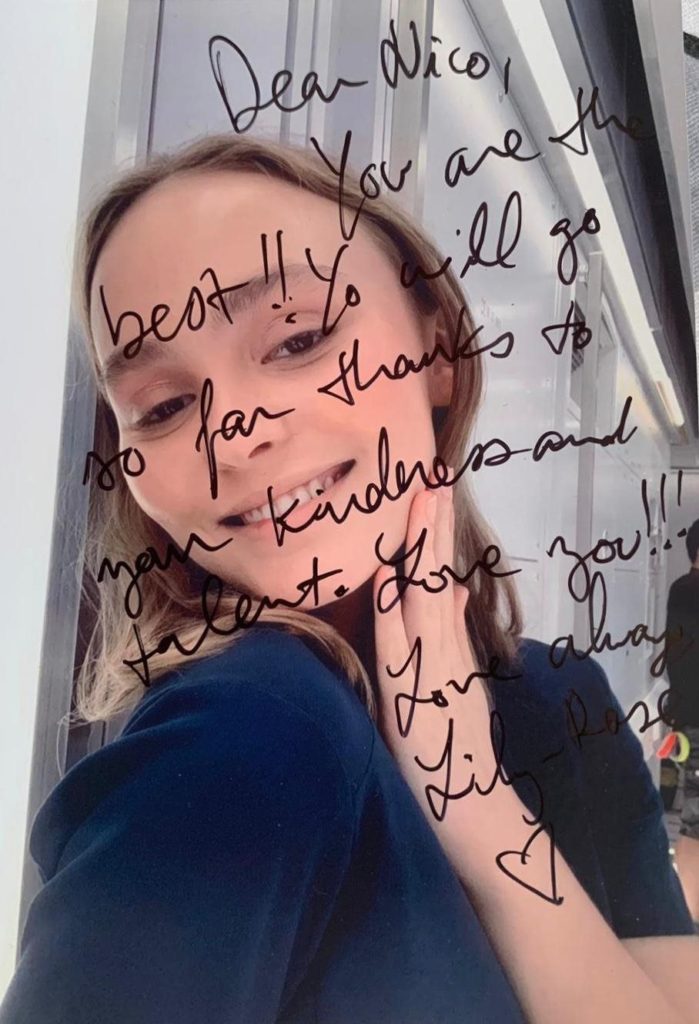 Dear Nico,
You are the
best!! Yo will go
so far thanks to
your kindness and
talent. Love you!!!
Love always
Lily-Rose